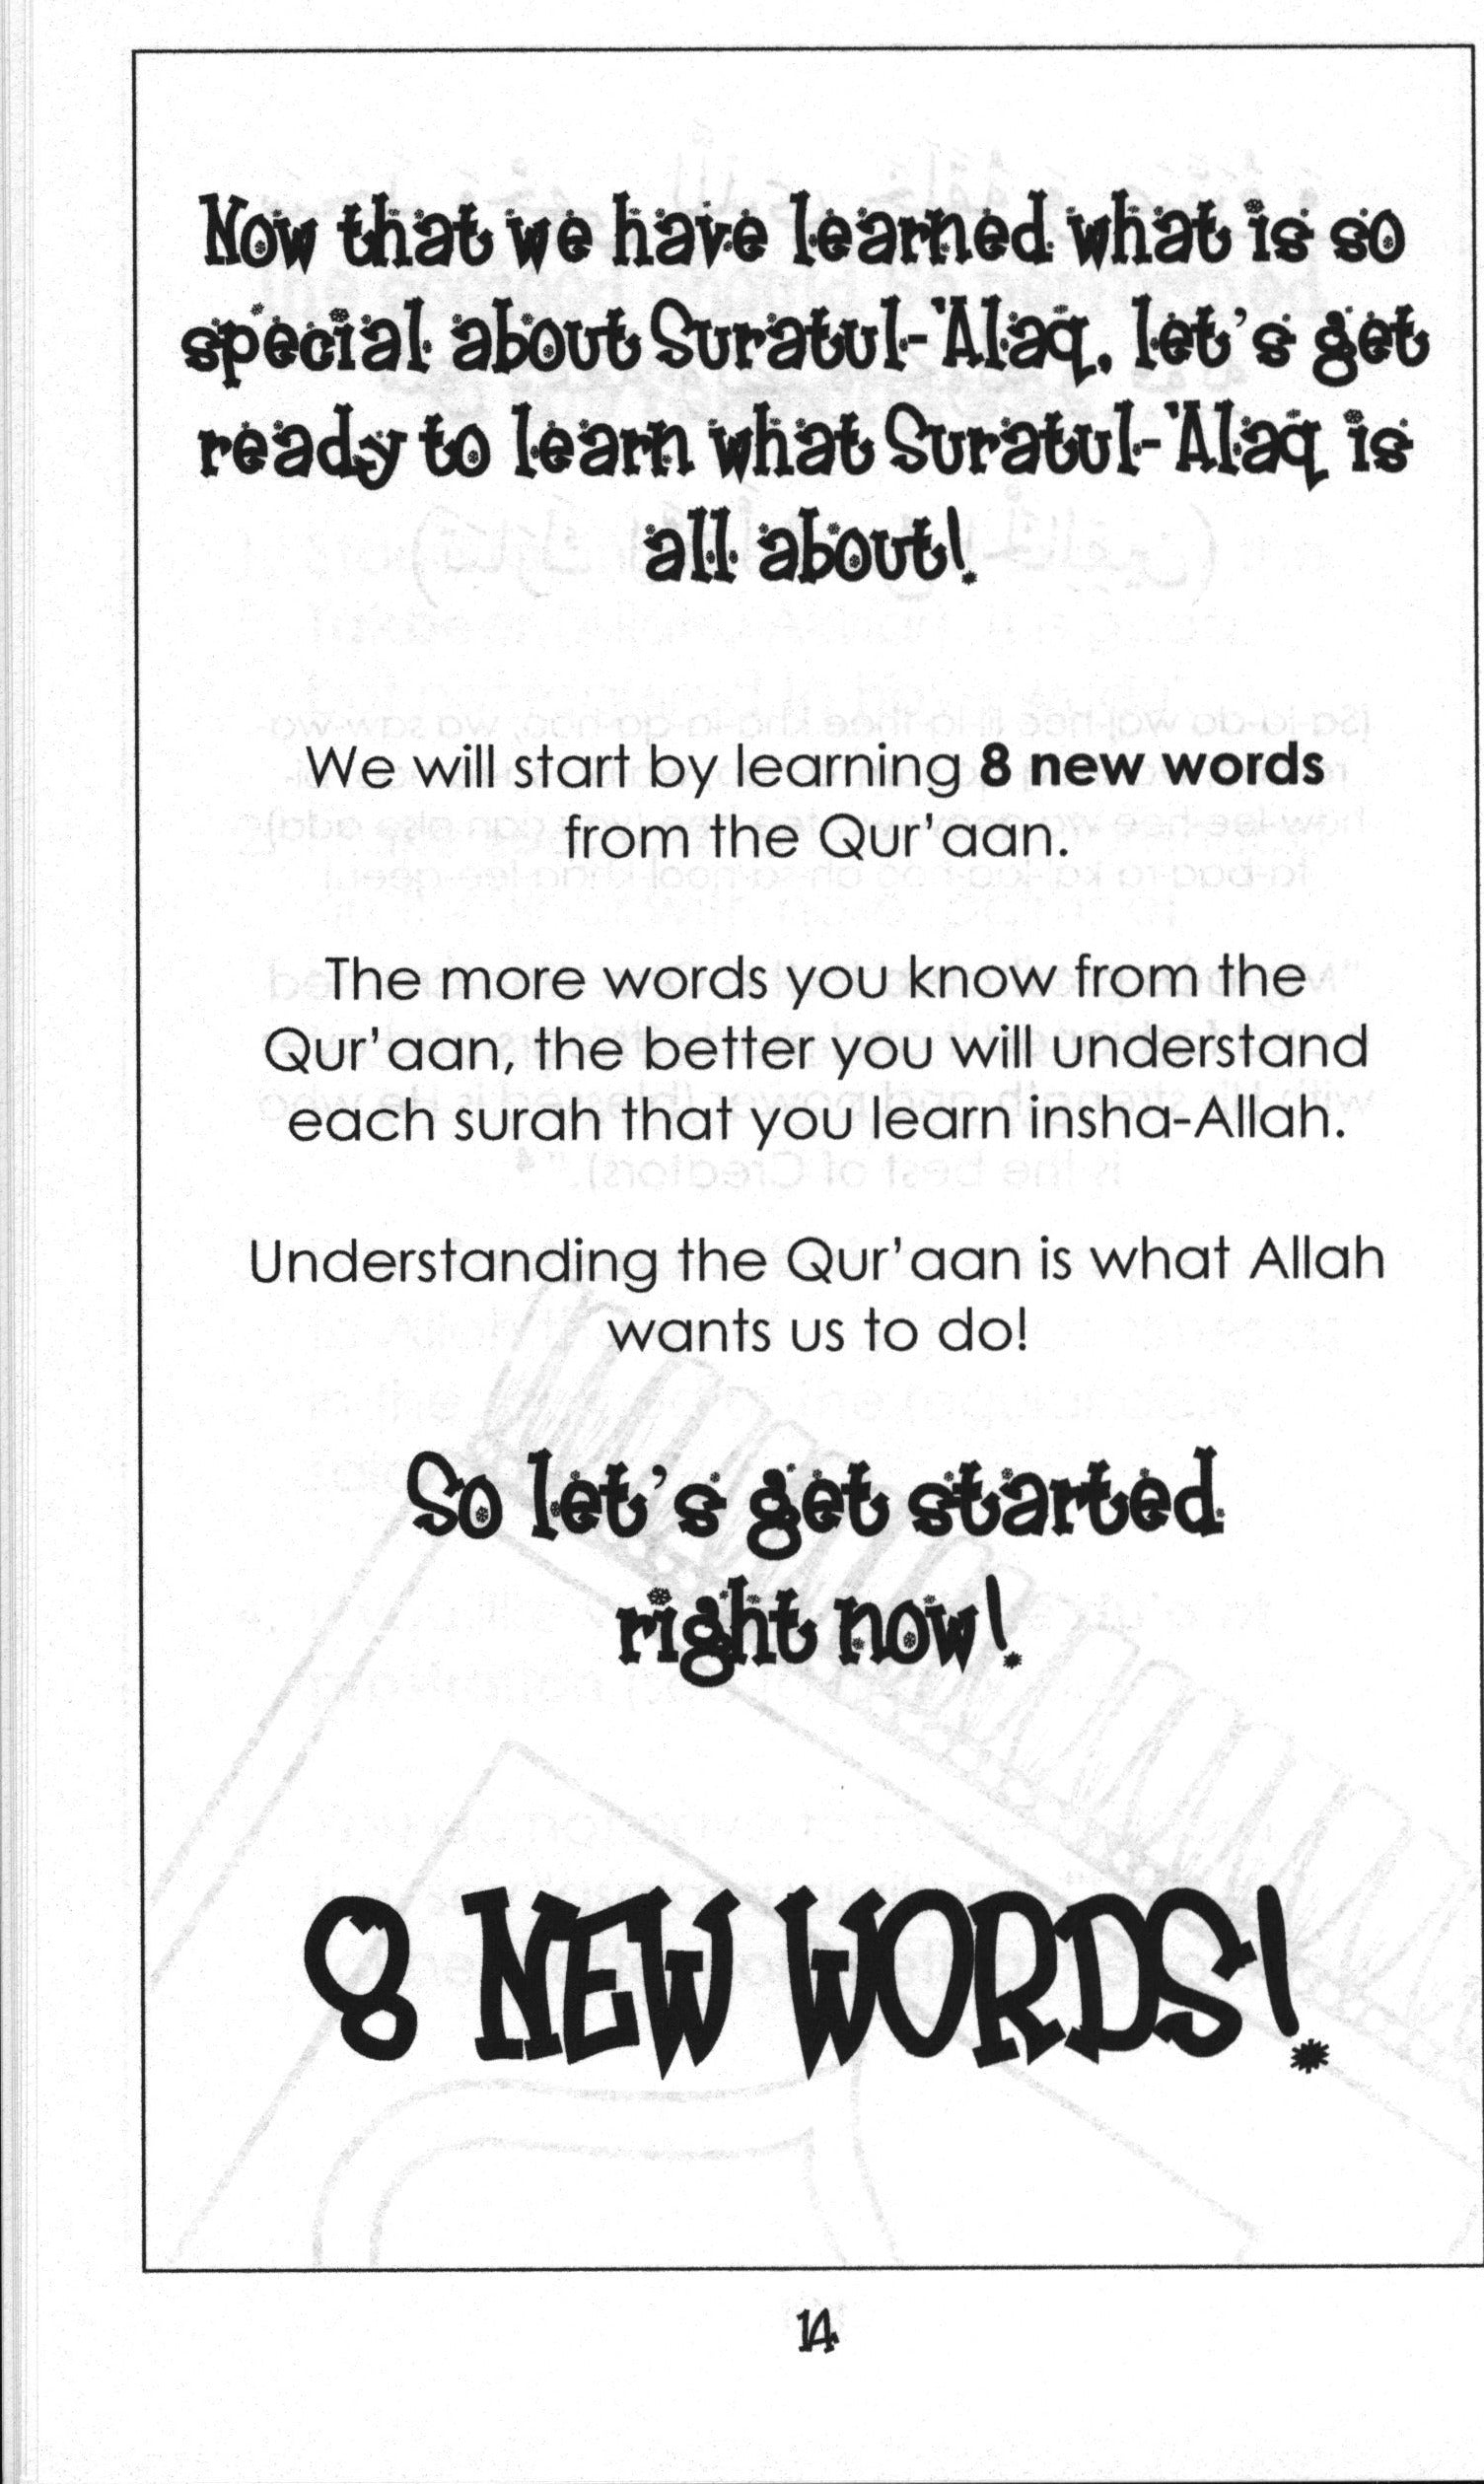 Now that we have learned what is so
special about Suratul-'Alaq, let's get
ready to learn what Suratul-'Alaq is
all about!
We will start by learning 8 new words
from the Qur'aan.
The more words you know from the
Qur'aan, the better you will understand
each surah that you learn insha-Allah.
Understanding the Qur'aan is what Allah
wants us to do!
So let's get started
right now!
8 NEW WORDS!
14